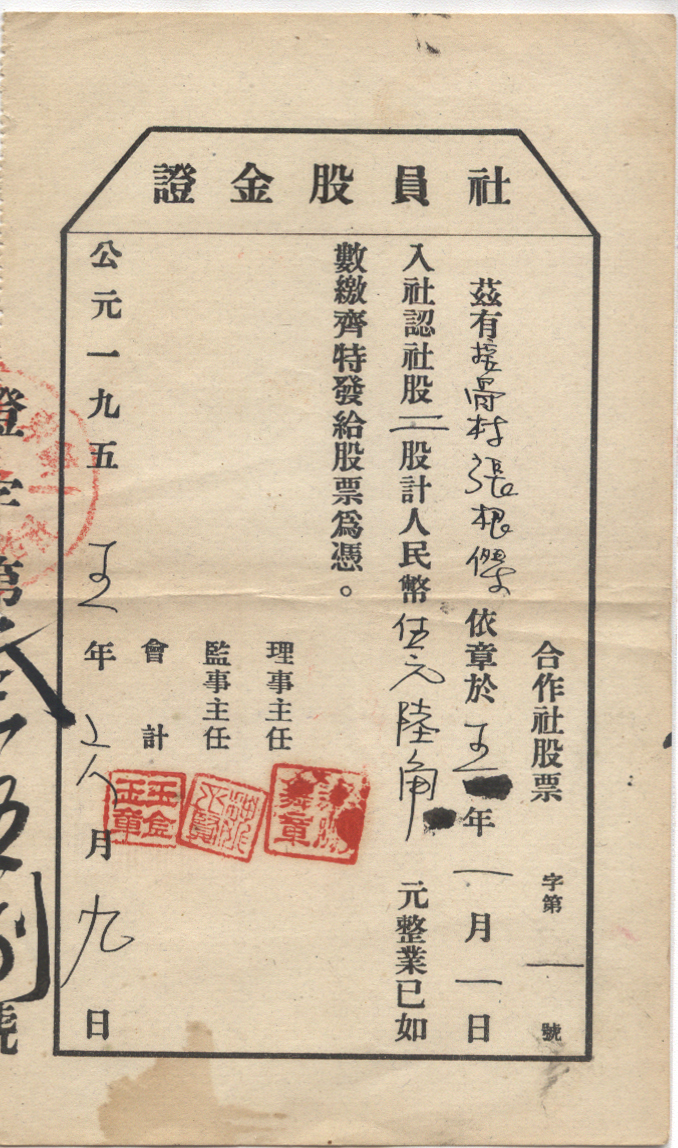 社員股金證
合作社股票 字第 一 號
茲有 村張根傑依章於五年一月一日
入社認社股二股計人民幣伍元陸角 元整業已如
數繳齊特發給股票為憑。
理事主任
監事主任
會計
公元一九五五年 六月九日
證字第叁 伍 號